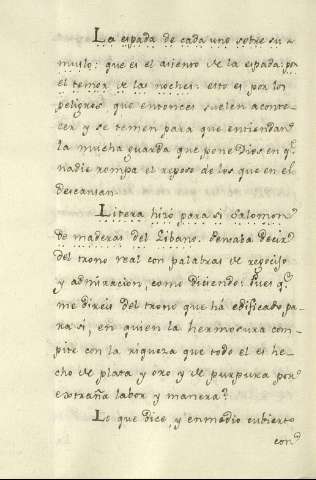 La espada de cada uno sobre su
muslo: que es el asiento de la espada: por
el temor de las noches. esto es por los
peligros que entonces suelen aconte-
cer y se temen para que entiendan
la mucha guarda que pone Dios en q.e
nadie rompa el reposo de los que en el
descansan.
Litera hizo para si Salomon
de maderas del Libano. Demaba decir
del trono real con palabras de regocijo
y admiracion, como diciendo: Pues q.e
me direis del trono que há edificado pa-
ra si, en quien la hermosura com-
pite con la riqueza que todo el es he-
cho de plata y oro y de purpura por
extraña labor y manera?
Lo que dice, y en medio cubierto
con